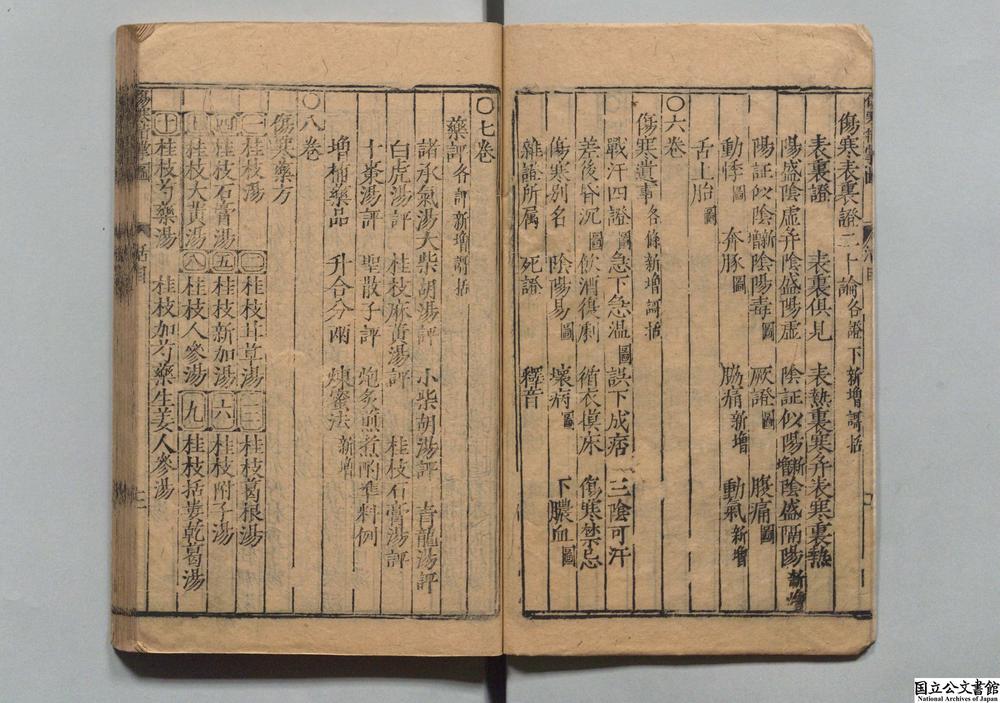 傷寒表裏證二十論各證下新增謌括
表裏證 表裏俱見 表熱裏寒幷表寒裏熱
陽盛陰虛幷陰盛陽虛 陰証似陽新增陰盛隔陽新增
陽証似陰新增陰陽毒圖 厥證圖 腹痛圖
動悸圖 奔豚圖 脇痛新增 動氣新增
舌上胎圖
○六卷
傷寒遺事各條新增謌括
戰汗四證圖急下急温圖誤下成痞 三陰可汗
差後昏沉圖飲酒復劇 循衣摸床 傷寒禁忌
傷寒別名 陰陽易圖 壞病圖 下膿血圖
雜證所属 死證 釋音
○七卷
藥評各評新增謌括
諸承氣湯大柴胡湯評 小柴胡湯評 青龍湯評
白虎湯評 桂枝麻黃湯評 桂枝石膏湯評
十棗湯評 聖散子評 炮炙煎煮附準料例
增補藥品 升合分兩 煉蜜法新增
○八卷
傷寒藥方
一桂枝湯 二桂枝甘草湯 三桂枝葛根湯
四桂枝石膏湯 五桂枝新加湯 六桂枝附子湯
七桂枝大黃湯 八桂枝人參湯 九桂枝括蔞乾葛湯
十桂枝芍藥湯 桂枝加芍藥生姜人參湯
国立公文書館
National Archives of Japan